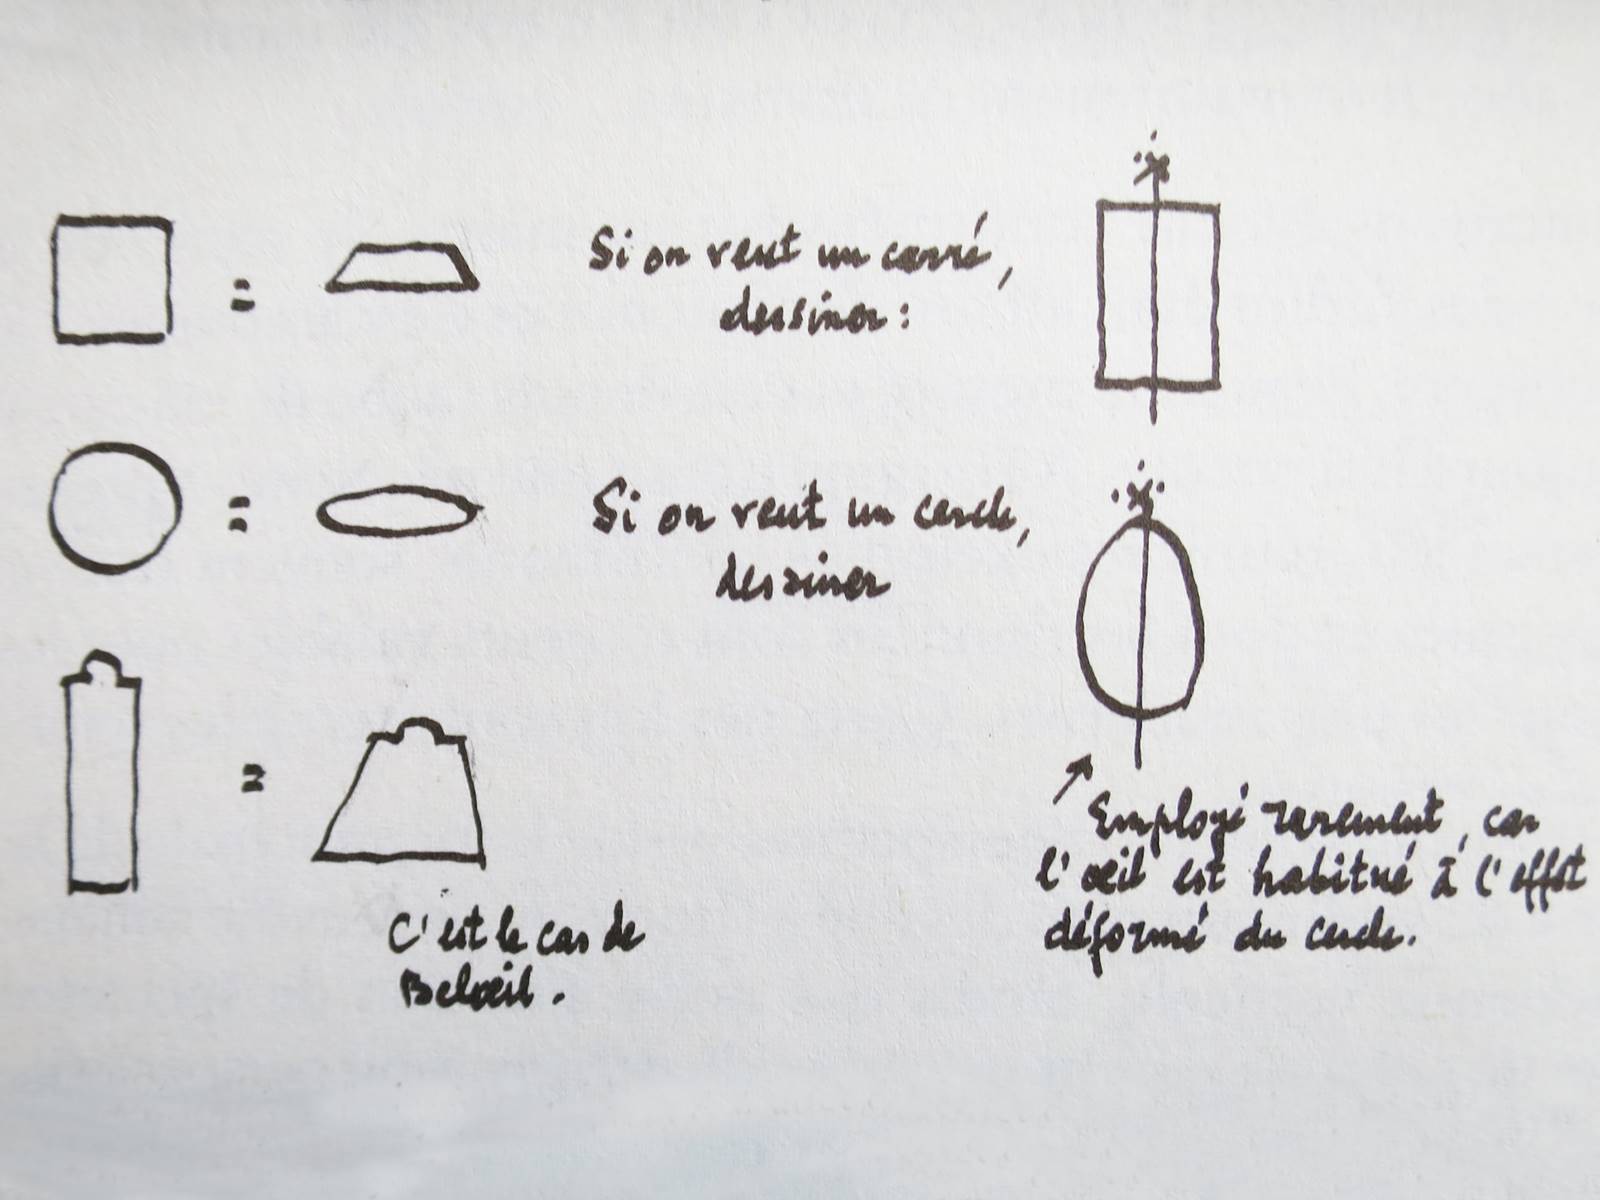 Si on veut un carré,
dessiner :
Si on veut un cercle,
dessiner
C'est le cas de
Belœil.
Employé rarement, car
l'œil est habitué à l'effet
déformé du cercle.